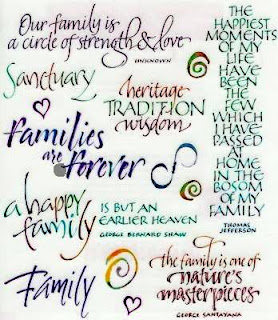 Our family is
a circle of strength & love
UNKNOWN
Sanctuary
heritage
TRADITION
wisdom
families
are forever
a happy
family
IS BUT AN
EARLIER HEAVEN
GEORGE BERNARD SHAW
Family
THE
HAPPIEST
MOMENTS
OF MY
LIFE
HAVE
BEEN
THE
FEW
WHICH
I HAVE
PASSED
@ HOME
IN THE
BOSOM
OF MY
FAMILY
THOMAS
JEFFERSON
the family is one of
nature's
masterpieces
GEORGE SANTAYANA